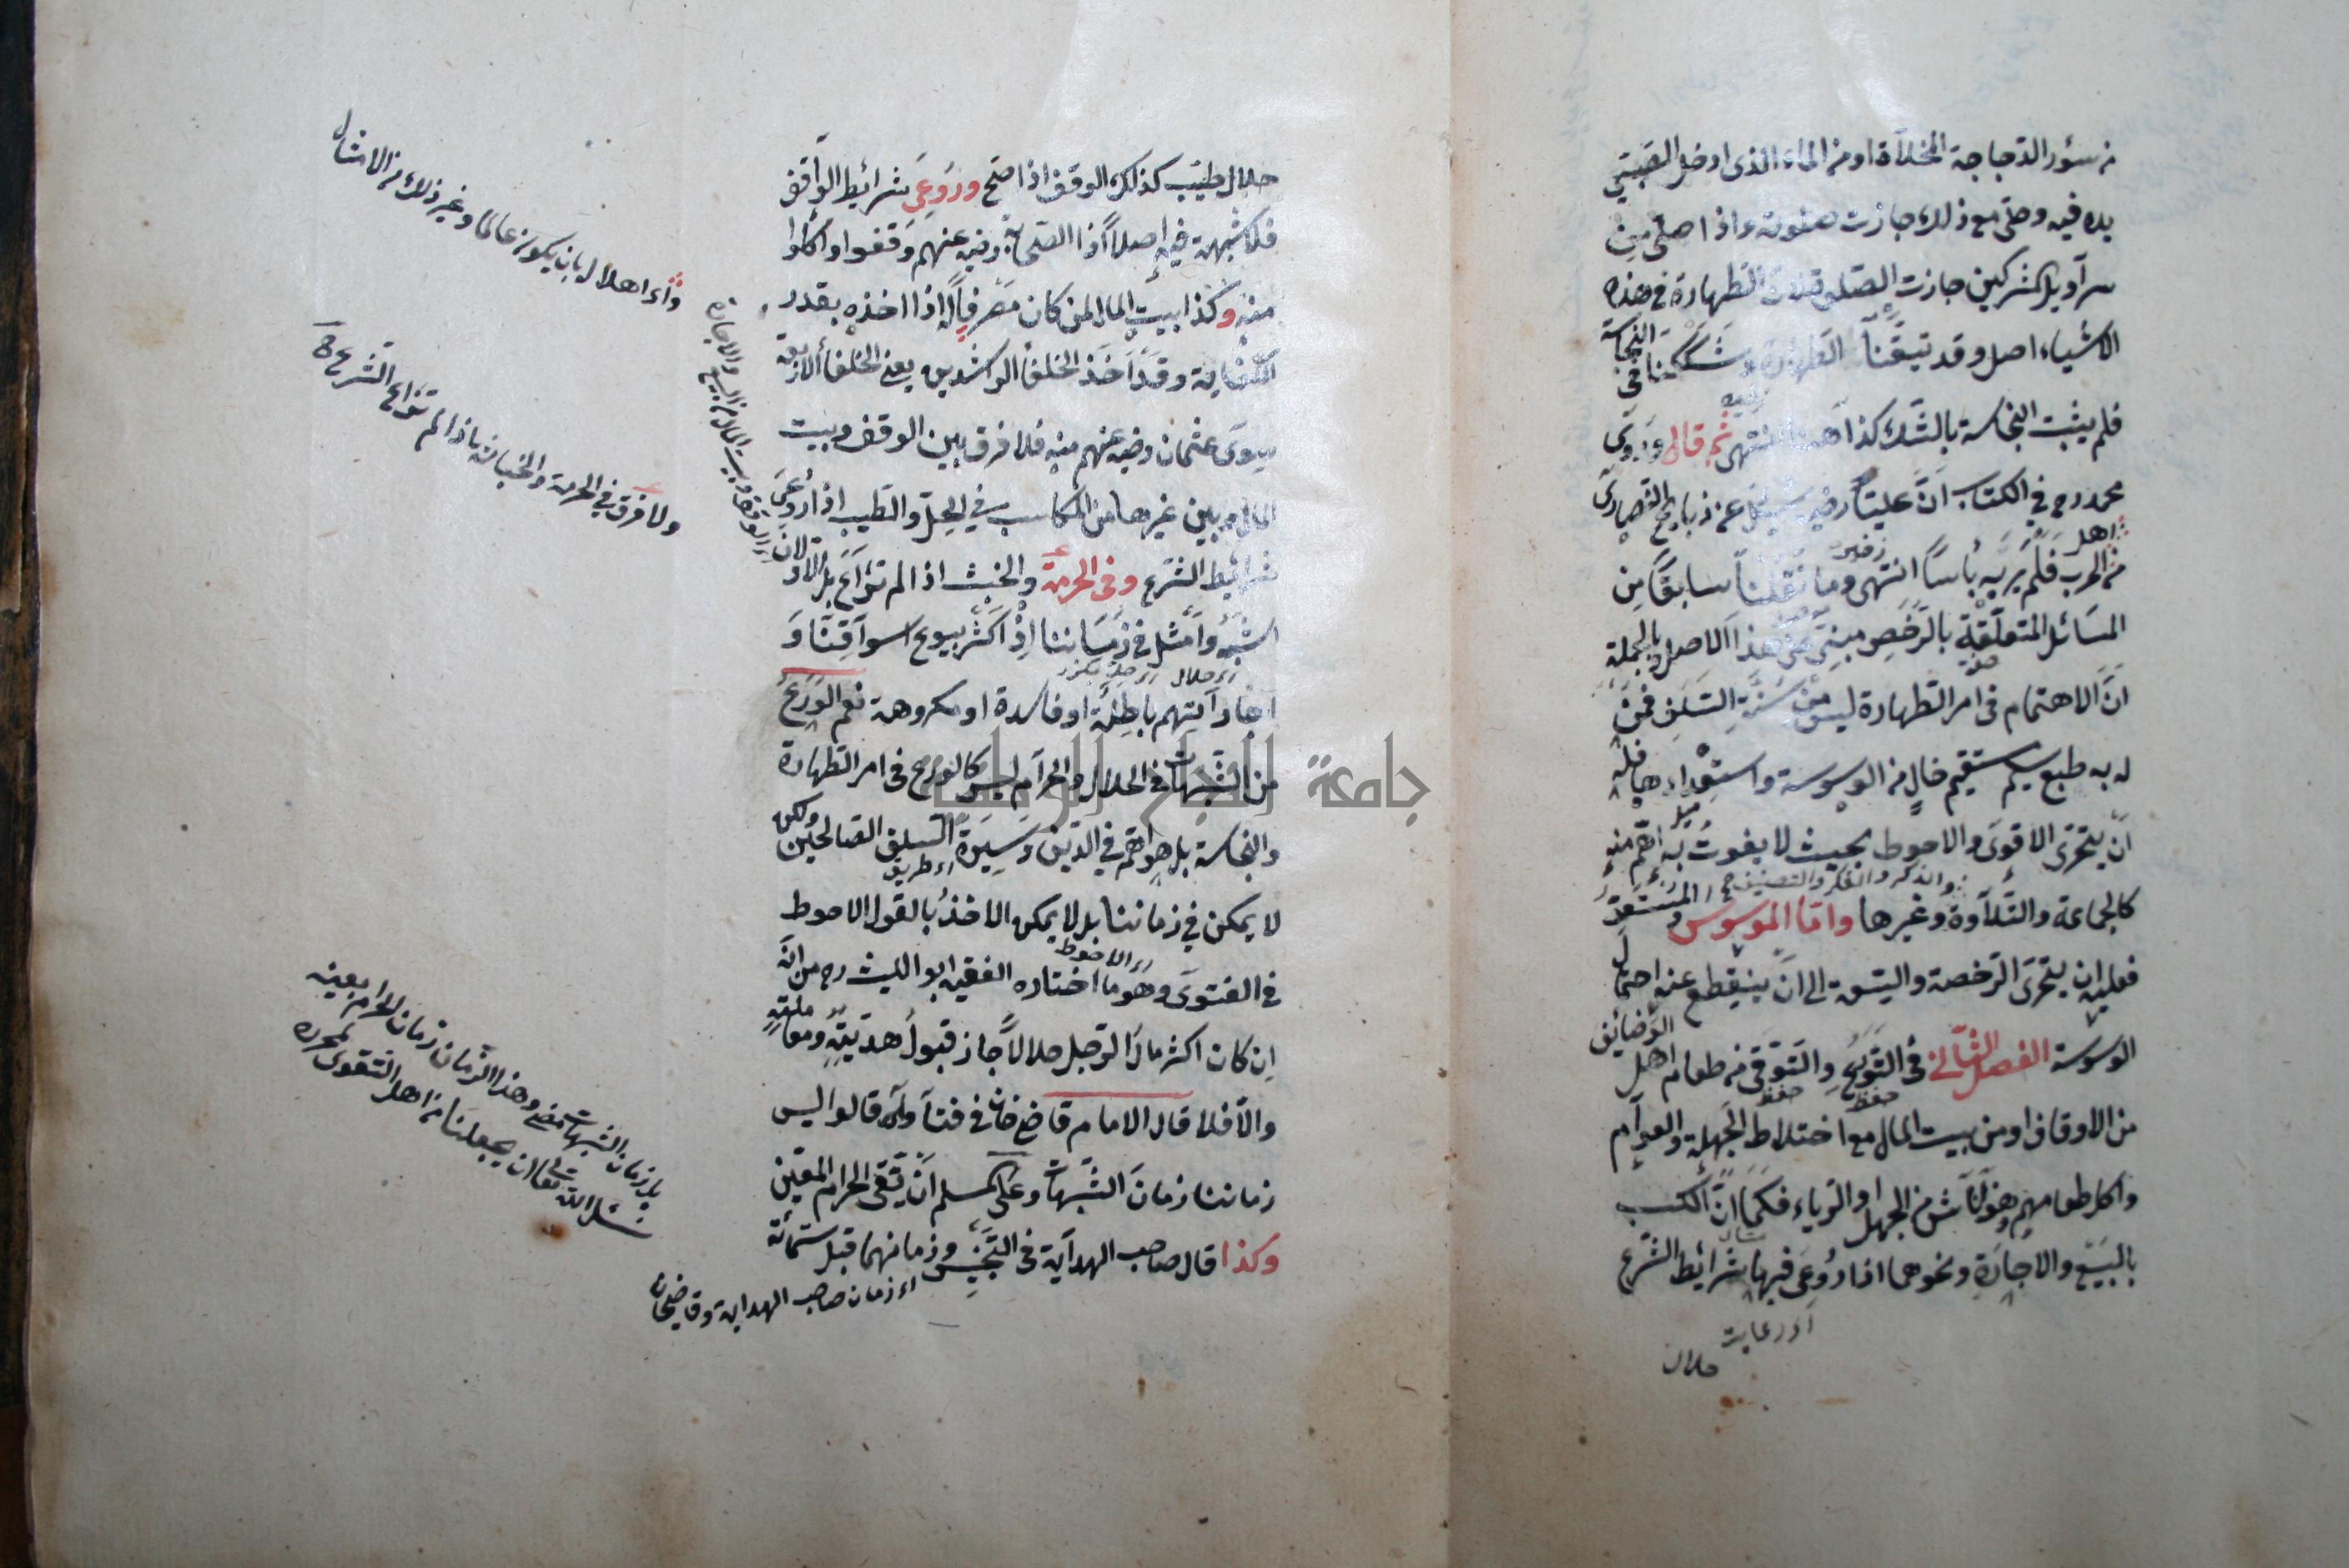 من سؤر الدجاجة المخلاة او من الماء الذى ادخل الصبي
يده فيه وصلى مع ذلك جازت صلوته واذا صلى من
سرآويل المشركين جازت الصلوة لان الطهارة فى هذه
الاشياء اصل وقد تيقنا الطهارة وشككنا فى النجاسة
فلم يثبت النجاسة بالشك كذا ههنا انتهى ثم قال وروى
محمد رح فى الكتاب انّ عليا رضيه سئل عن ذبايح النصارى
من اهل الحرب فلم ير به بأسا انتهى وما نقلنا سابقا من
المسائل المتعلقة بالرخص مبنى على هذا الاصل وبالجملة
انّ الاهتمام فى امر الطهارة ليس من سنة السلف فمن
له به طبع سليم مستقيم خال من الوسوسة واستعداد ها فله
ميل
ان يتحرى الاقوى والاحوط بحيث لا يفوت به اهم منه
والذكر والفكر والتصنيف صح
كالجماعة والتلاوة وغيرها واما الموسوس او المستعد
فعليه ان يتحرى الرخصة والسعة الى ان ينقطع عنه احتمال
الوسوسة الفصل الثانى فى التورع والتوقى من طعام اهل الوظائف
حفظ حفظ
من الاوقاف او من بيت المال مع اختلاط الجهلة والعوام
واكل طعامهم وهو ناش من الجهل او الرياء فكما انّ الكسب
بالبيع والاجارة ونحوهما اذا روعى فيها شرائط الشرع
اى رعايت
حلال
حلال طيب كذلك الوقف اذا صح وروعى شرائط الواقف
فلا شبهة فيه اصلا اذ الصحابة رضيه عنهم وقفوا واكلوا
منه وكذا بيت المال لمن كان مصرفا له اذا اخذه بقدر
الكفاية وقد اخذ الخلفأ الراشدين يعنى الخلفأ الاربعة
سوى عثمان رضيه عنهم منه فلا فرق بين الوقف وبيت
المال وبين غيرها من المكاسب فى الحل والطيب اذا روعى
شرائط الشرع وفى الحرمة والخبث اذا لم تراع بل الاولان
اشبه وامثل فى زماننا اذ اكثر بيوع اسواقنا و
اجاراتهم باطلة او فاسدة او مكروهة نعم الورع
من الشبهات فى الحلال والحرام ليس كالورع فى امر الطهارة
والنجاسة بل هو اهم فى الدين وسيرة السلف الصالحين ولكن
اى طريق
لا يمكن فى زماننا بل لا يمكن الاخذ بالقول الاحوط
اى الاحوط
فى الفتوى وهو ما اختاره الفقيه ابو الليث رح من انه
ان كان اكثر مال الرجل حلالا جاز قبول هديته ومعاملته
والا فلا قال الامام قاضى خان فى فتاواه قالوا ليس
زماننا زمان الشبهات وعلى المسلم ان يتقى الحرام المعين
وكذا قال صاحب الهداية فى التجنيس وزمانهما قبل ستمائة
اى زمان صاحب الهداية وقاضيخان
واى اهلا له بان يكون عالما وغير ذلك من الامثال
ولا فرق فى الحرمة والخباثة اذا لم تراع الشرع
اى الوقف وبيت المال من البيع والاجارة
بل زمان الشبهات مضى وهذا الزمان زمان الحرام بعينه
نسئل الله تعالى ان يجعلنا من اهل التقوى لمحرره
جامعة النجاح الوطنية